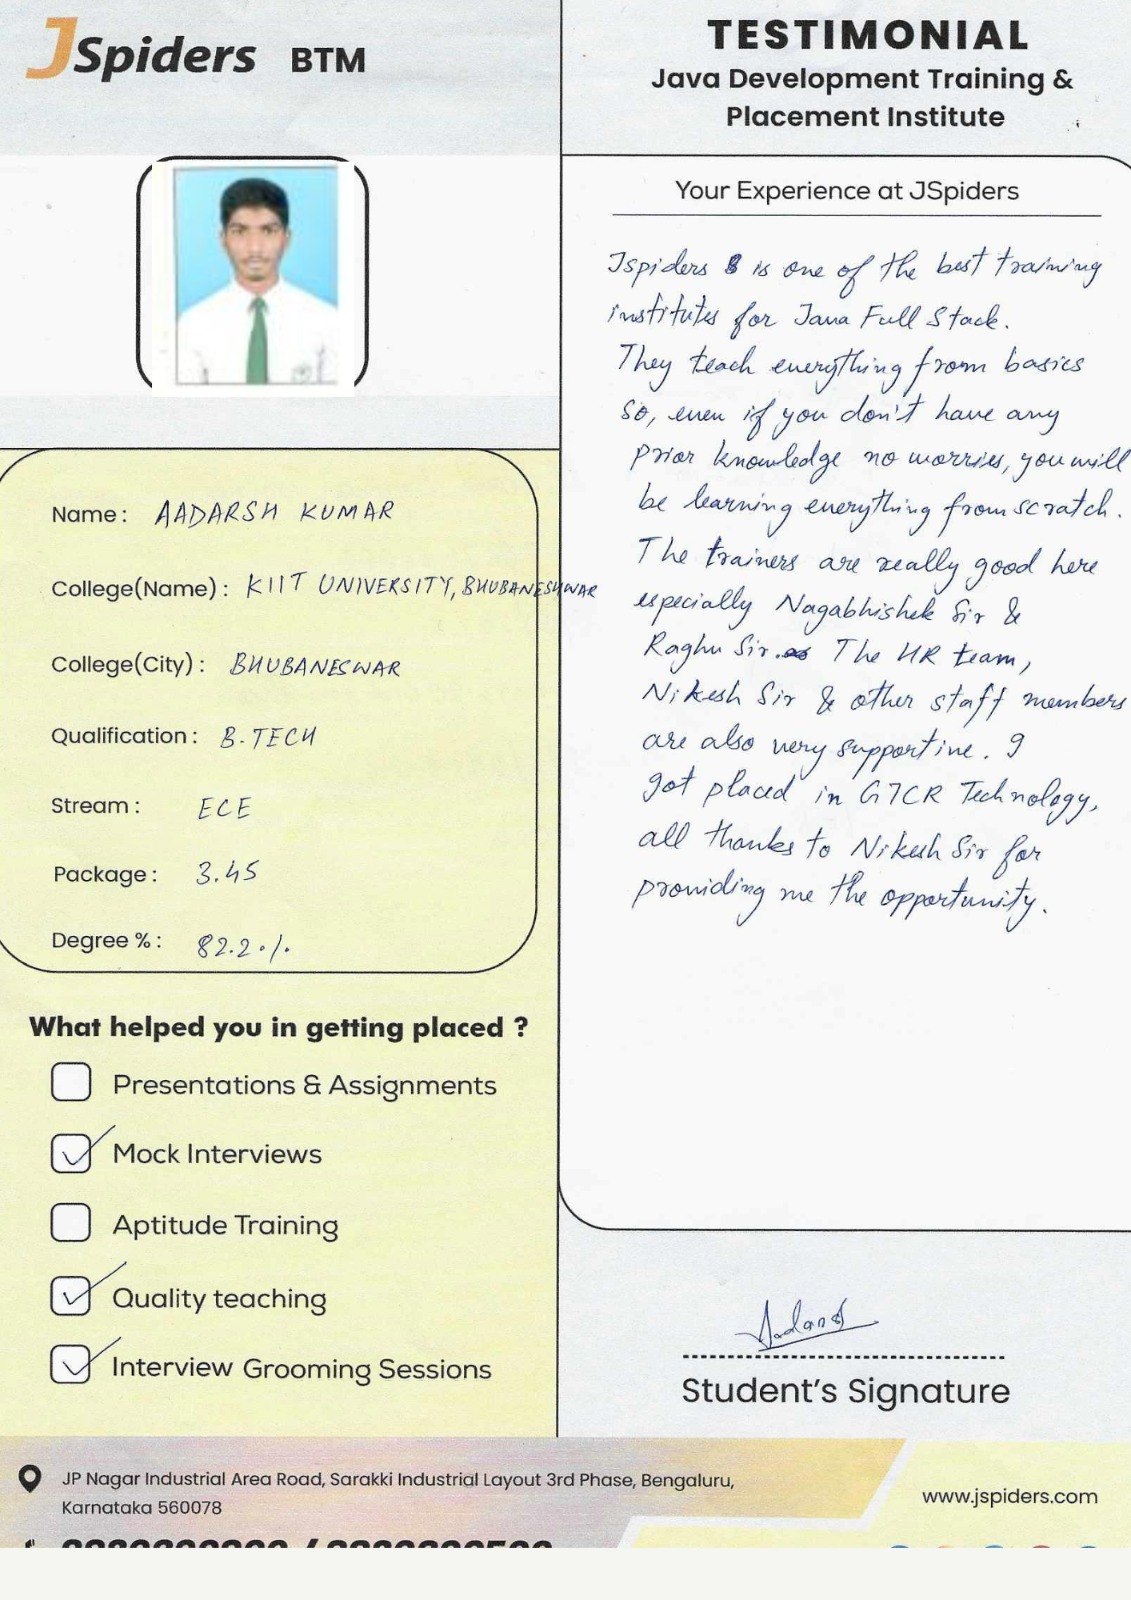 JSpiders BTM
TESTIMONIAL
Java Development Training &
Placement Institute
Name: AADARSH KUMAR
College(Name): KIIT UNIVERSITY, BHUBANESHWAR
College(City): BHUBANESWAR
Qualification: B.TECH
Stream: ECE
Package: 3.45
Degree %: 82.2%
What helped you in getting placed ?
Presentations & Assignments
Mock Interviews
Aptitude Training
Quality teaching
Interview Grooming Sessions
Your Experience at JSpiders
Jspiders is one of the best training
institutes for Java Full Stack.
They teach everything from basics
so, even if you don't have any
prior knowledge no worries, you will
be learning everything from scratch.
The trainers are really good here
especially Nagabhishek Sir &
Raghu Sir. The HR team,
Nikesh Sir & other staff members
are also very supportive. I
got placed in G7CR Technology,
all thanks to Nikesh Sir for
providing me the opportunity.
Aadarsh
Student's Signature
JP Nagar Industrial Area Road, Sarakki Industrial Layout 3rd Phase, Bengaluru,
Karnataka 560078
www.jspiders.com